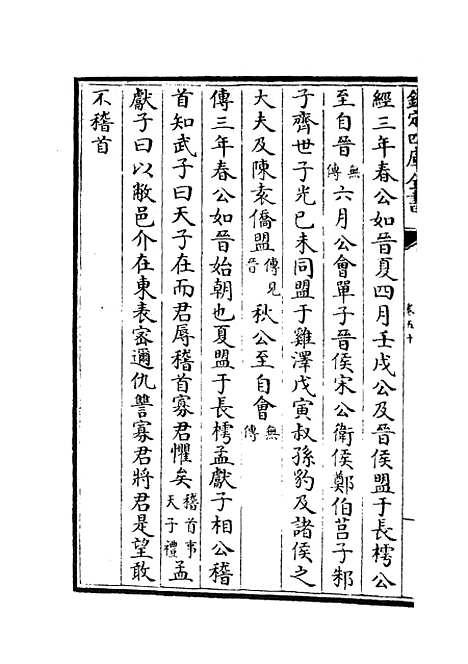 欽定四庫全書
卷五十
經三年春公如晉夏四月壬戌公及晉侯盟于長樗公
至自晉無傳六月公會單子晉侯宋公衛侯鄭伯莒子邾
子齊世子光已未同盟于雞澤戊寅叔孫豹及諸侯之
大夫及陳袁僑盟傳見晉秋公至自會無傳
傳三年春公如晉始朝也夏盟于長樗孟獻子相公稽
首知武子曰天子在而君辱稽首寡君懼矣稽首事天子禮孟
獻子曰以敝邑介在東表密邇仇讐寡君將君是望敢
不稽首